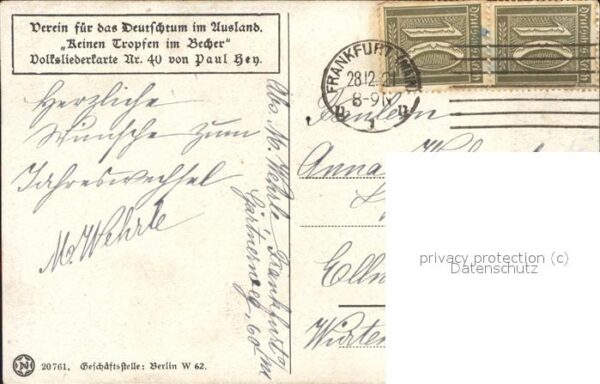 Verein für das Deutschtum im Ausland.
„Keinen Tropfen im Becher"
Volksliederkarte Nr. 40 von Paul Hey.
Herzliche
Wünsche zum
Jahreswechsel
M. Wehrle
Abs. M. Wehrle Frankfurt
Gärtnerweg 60
10
Deutsches Reich
10
Deutsches Reich
FRANKFURT (MAIN)
28.12.21
8-9N
1
Fräulein
Anna
privacy protection (c)
Datenschutz
20761. Geschäftsstelle: Berlin W 62.